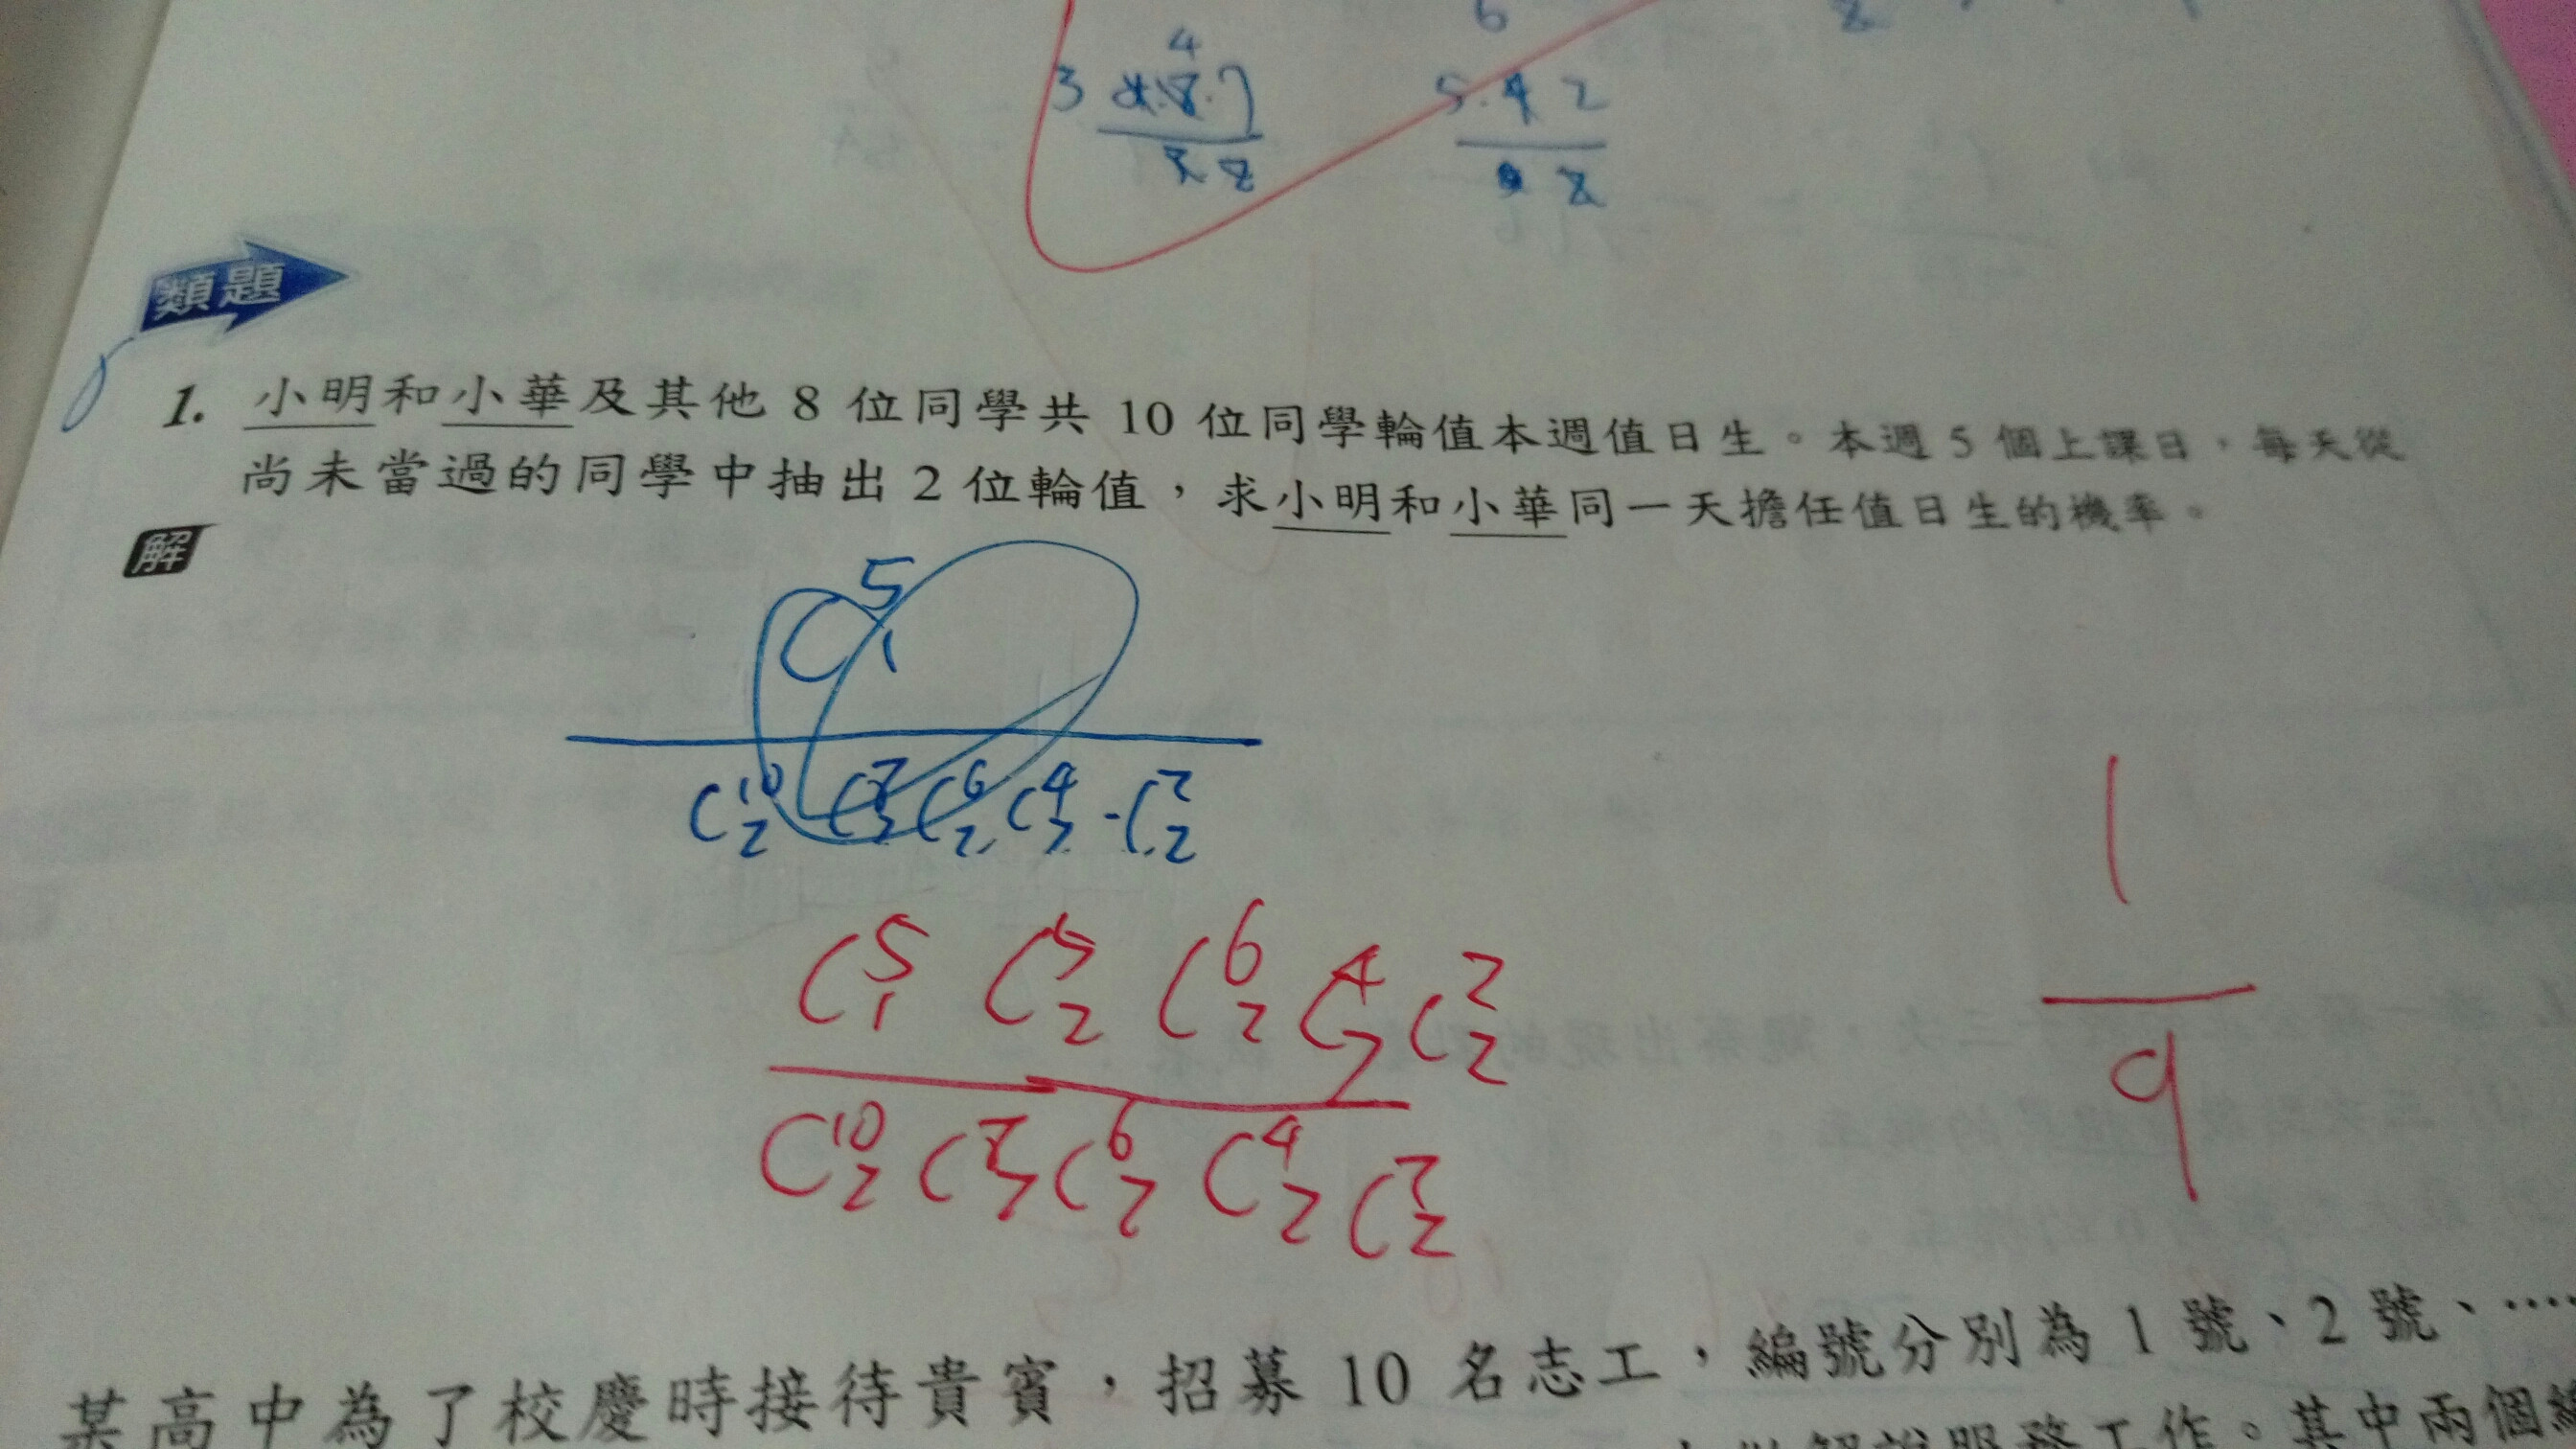 4
6
3 4.8.7
5.4 2
3 2
2
類題
1. 小明和小華及其他 8 位同學共 10 位同學輪值本週值日生。本週 5 個上課日,每天從
尚未當過的同學中抽出 2 位輪值,求小明和小華同一天擔任值日生的機率。
解
C 5 1
C 10 2 C 8 2 C 6 2 C 4 2 · C 2 2
C 5 1 C 8 2 C 6 2 C 4 2 C 2 2
C 10 2 C 8 2 C 6 2 C 4 2 C 2 2
1
9
某高中為了校慶時接待貴賓,招募 10 名志工,編號分別為 1 號、2 號、……
解說服務工作。其中兩個